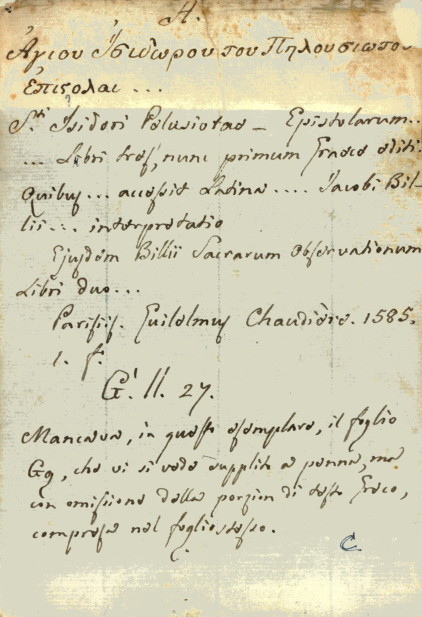 A.
Ἁγίου Ἰσιδώρου του Πηλουσιωτου
Ἐπιςολαι ...
S.ti Isidori Pelusiotae - Epistolarum...
... Libri tres, nunc primum Graece editi.
Quibus ... accessit Latina .... Jacobi Bil-
lii ... interpretatio
Ejusdem Billii Sacrarum Observationum
Libri duo...
Parisiis. Guilelmus Chaudière. 1585.
1. f.
G. II. 27.
Mancava, in questo esemplare, il foglio
Gg, che vi si vede supplito a penna, ma
con omissione della porzion di testo Greco,
compresa nel foglio stesso.
C